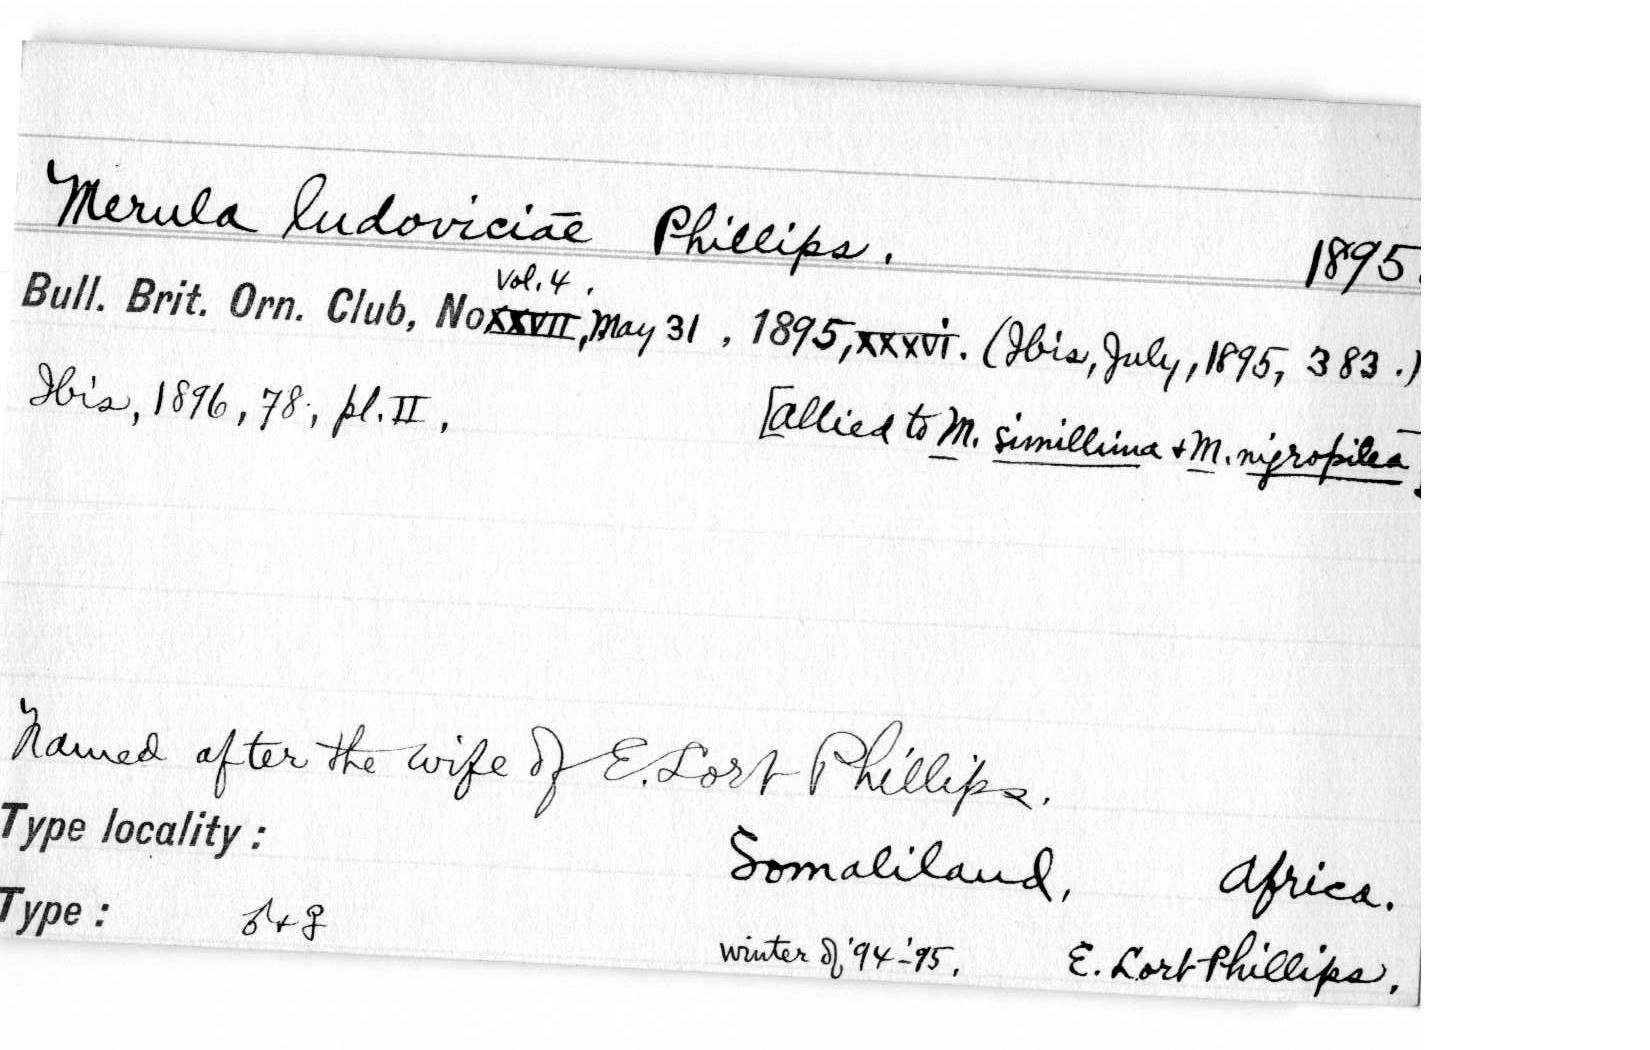 Merula ludoviciae Phillips. 1895.
Vol. 4.
Bull. Brit. Orn. Club, No XXVII, May 31, 1895, xxxvi. (Ibis, July, 1895, 383.)
Ibis, 1896, 78, pl. II, [allied to M. simillima + M. nigropilea]
Named after the wife of E. Lort Phillips.
Type locality: Somaliland, Africa.
Type: ♂ + ♀
winter of '94-'95. E. Lort Phillips.